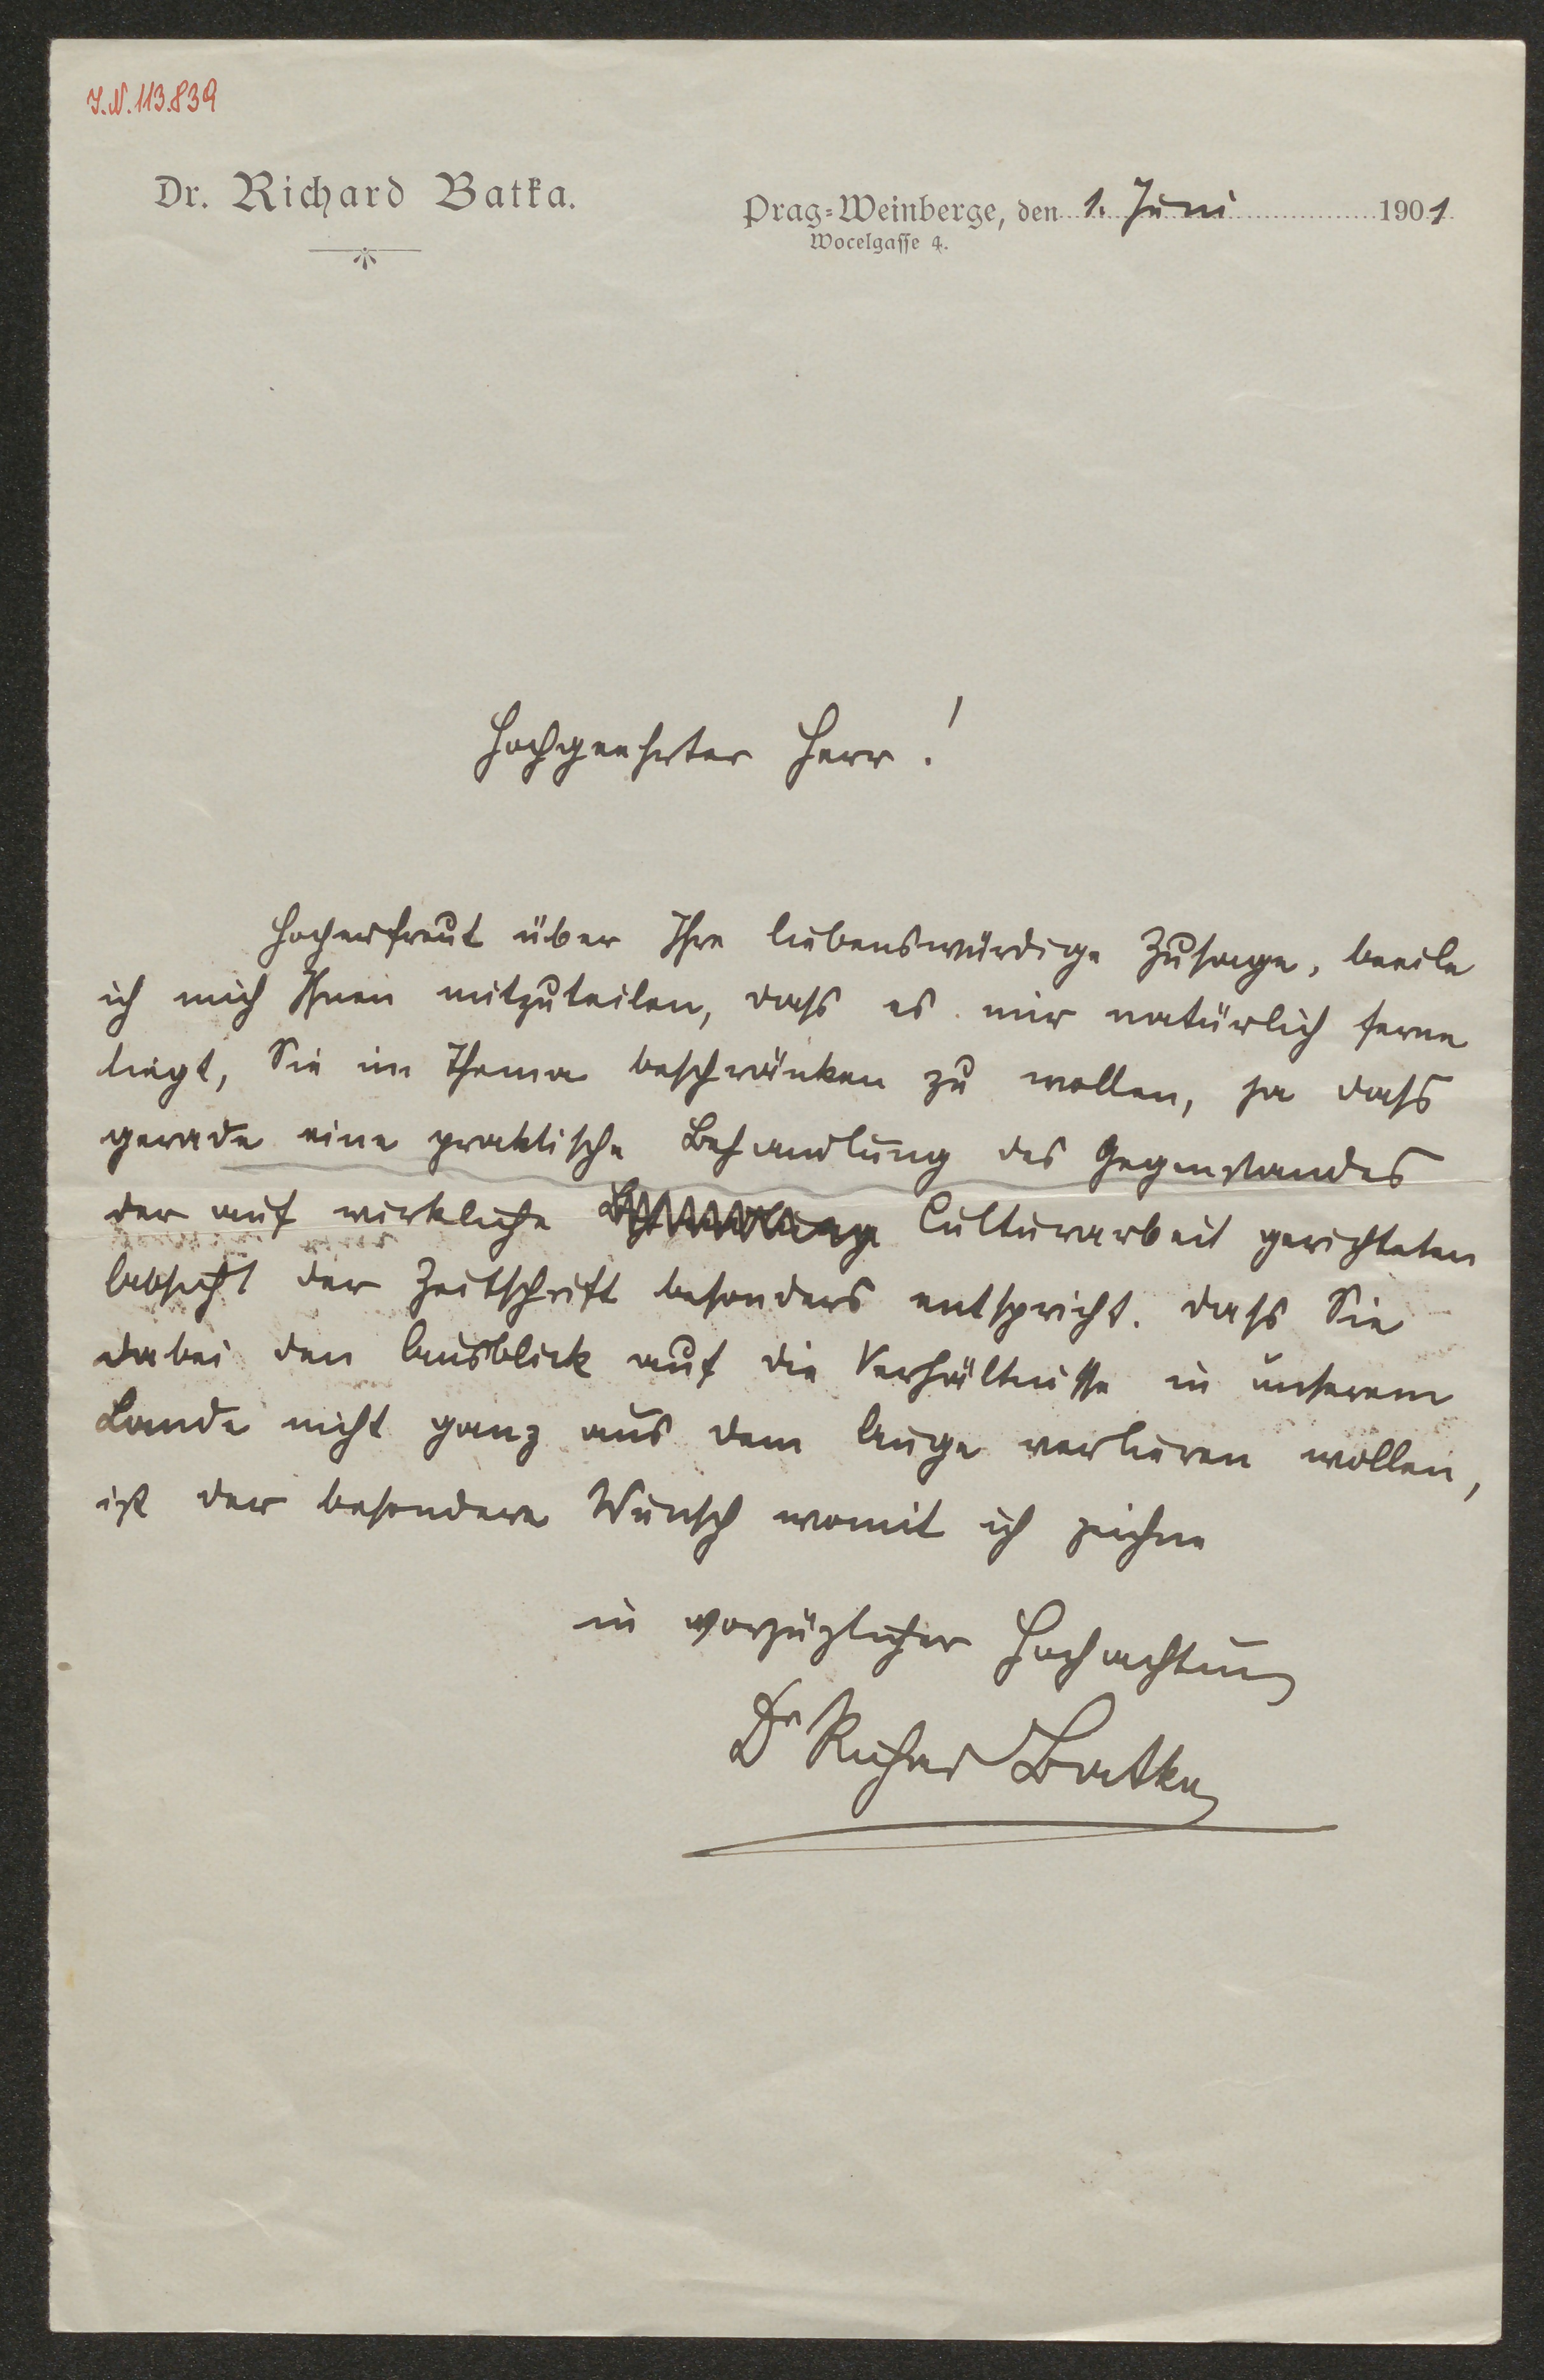 J.N. 113.839
Dr. Richard Batka.
Prag-Weinberge, den 1. Juni 1901
Wocelgasse 4.
Hochgeehrter Herr!
Hocherfreut über Ihre liebenswürdige Zusage, beeile
ich mich Ihnen mitzuteilen, dass es mir natürlich ferne
liegt, Sie im Thema beschränken zu wollen, ja dass
gerade eine praktische Behandlung des Gegenstandes
der auf wirkliche Culturarbeit gerichteten
Absicht der Zeitschrift besonders entspricht. Dass Sie
dabei den Ausblick auf die Verhältnisse in unserem
Lande nicht ganz aus dem Auge verlieren wollen,
ist der besondere Wunsch womit ich zeichne
in vorzüglicher Hochachtung
Dr Richard Batka